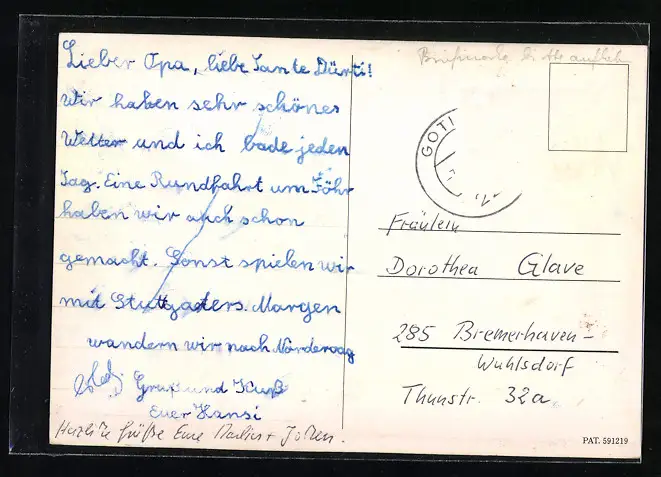 Lieber Opa, liebe Tante Dürti!
Wir haben sehr schönes
Wetter und ich bade jeden
Tag. Eine Rundfahrt um Föhr
haben wir auch schon
gemacht. Sonst spielen wir
mit Stuttgaters. Morgen
wandern wir nach Nörderoog
Gruß und Kuß
Euer Hansi
Herzliche Grüße Eure
Briefmarke bitte aufkleben
GOTI
Fräulein
Dorothea Glave
285 Bremerhaven-
Wuhlsdorf
Thunstr. 32a
PAT. 591219